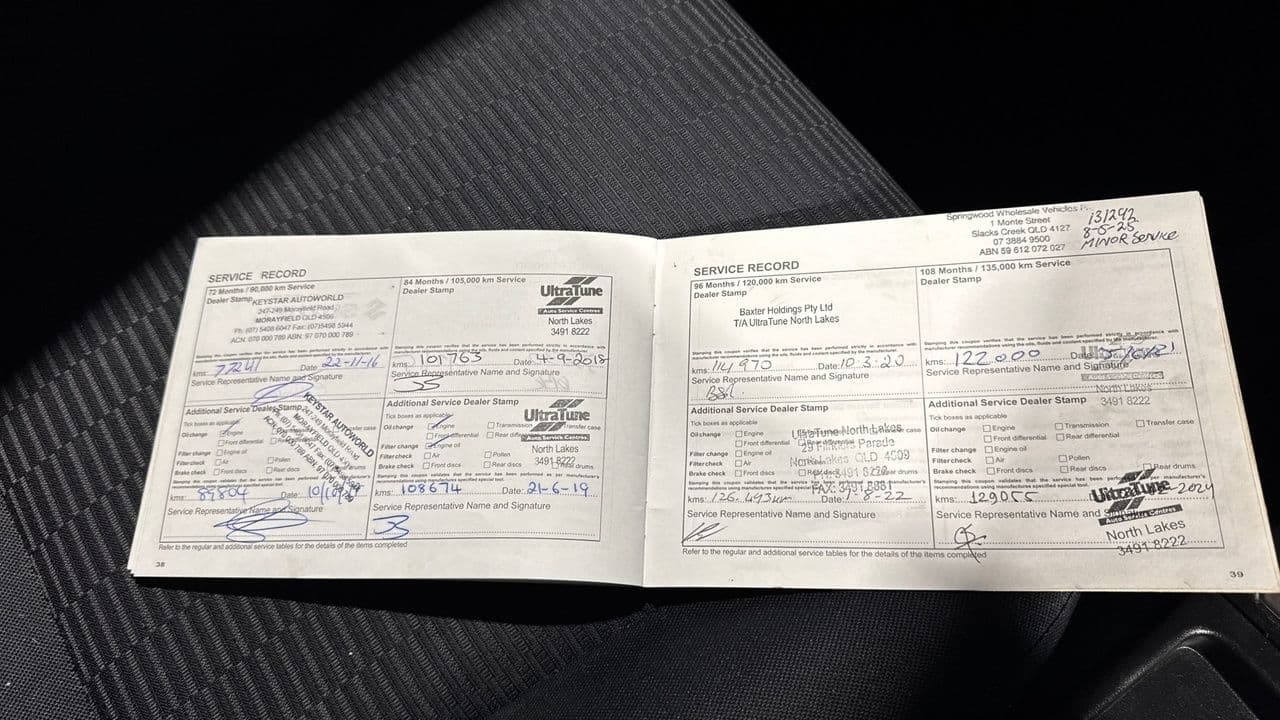 SERVICE RECORD
72 Months / 90,000 km Service
Dealer Stamp
KEYSTAR AUTOWORLD
247-249 Morayfield Road
MORAYFIELD QLD 4506
Ph: (07) 5498 Fax: (07)5498 5944
ACN: 070 000 789 ABN: 97 070 000 789
kms: 77241 Date: 22-11-16
Service Representative Name and Signature
84 Months / 105,000 km Service
Dealer Stamp
UltraTune
Auto Service Centres
North Lakes
3491 8222
Stamping this coupon verifies that the service has been performed strictly in accordance with
manufacturer recommendations using the oils, fluids and coolant specified by the manufacturer.
kms: 101763 Date: 4-9-2018
Service Representative Name and Signature
Additional Service Dealer Stamp
KEYSTAR AUTOWORLD
Tick boxes as applicable
Oil change Engine
Front differential
Filter change Engine oil
Filter check Air Pollen
Brake check Front discs Rear discs
kms: 89804 Date:
Service Representative Name and Signature
Additional Service Dealer Stamp
UltraTune
Auto Service Centres
North Lakes
3491 8222
Tick boxes as applicable
Oil change Engine Transmission Transfer case
Front differential Rear
Filter change Engine oil
Filter check Air Pollen
Brake check Front discs Rear discs Rear drums
kms: 108674 Date: 21-6-19
Service Representative Name and Signature
Refer to the regular and additional service tables for the details of the items completed
38
Springwood Wholesale Vehicles
1 Monte Street
Slacks Creek QLD 4127
07 3884 9500
ABN 59 612 072 027
131292
8-5-25
MINOR SERVICE
SERVICE RECORD
96 Months / 120,000 km Service
Dealer Stamp
Baxter Holdings Pty Ltd
T/A UltraTune North Lakes
Stamping this coupon verifies that the service has been performed strictly in accordance with
manufacturer recommendations using the oils, fluids and coolant specified by the manufacturer.
kms: 114970 Date: 10.3.20
Service Representative Name and Signature
108 Months / 135,000 km Service
Dealer Stamp
Stamping this coupon verifies that the service has been performed strictly in accordance with
manufacturer recommendations using the oils, fluids and coolant specified by the manufacturer.
kms: 122000 Date
Service Representative Name and Signature
North Lakes
3491 8222
Additional Service Dealer Stamp
UltraTune North Lakes
Parade
North Lakes QLD 4509
FAX: 3491 8881
Tick boxes as applicable
Oil change Engine
Front differential Rear differential
Filter change Engine oil
Filter check Air
Brake check Front discs Rear discs Rear drums
kms: 126.493km Date: 1-8-22
Service Representative Name and Signature
Additional Service Dealer Stamp
Tick boxes as applicable
Oil change Engine Transmission Transfer case
Front differential Rear differential
Filter change Engine oil
Filter check Air Pollen
Brake check Front discs Rear discs Rear drums
kms: 129055 2024
UltraTune
Auto Service Centres
North Lakes
3491 8222
Service Representative Name and
Refer to the regular and additional service tables for the details of the items completed
39